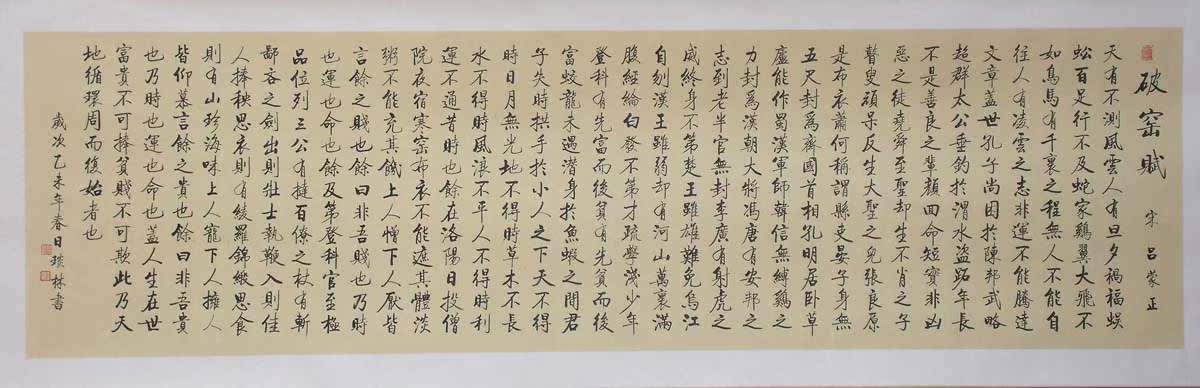 破窑賦
宋 呂蒙正
天有不測風雲人有旦夕禍福蜈
蚣百足行不及蛇家鷄翼大飛不
如鳥馬有千裏之程無人不能自
往人有凌雲之志非運不能騰達
文章蓋世孔子尚困於陳邦武略
超群太公垂釣於渭水盜跖年長
不是善良之輩顔回命短實非凶
惡之徒堯舜至聖却生不肖之子
瞽叟頑呆反生大聖之兒張良原
是布衣蕭何稱謂縣吏晏子身無
五尺封爲齊國首相孔明居卧草
廬能作蜀漢軍師韓信無縛鷄之
力封爲漢朝大將馮唐有安邦之
志到老半官無封李廣有射虎之
威終身不第楚王雖雄難免烏江
自刎漢王雖弱却有河山萬裏滿
腹經綸白發不第才疏學淺少年
登科有先富而後貧有先貧而後
富蛟龍未遇潜身於魚蝦之間君
子失時拱手於小人之下天不得
時日月無光地不得時草木不長
水不得時風浪不平人不得時利
運不通昔時也餘在洛陽日投僧
院夜宿寒窑布衣不能遮其體淡
粥不能充其饑上人憎下人厭皆
言餘之賤也餘曰非吾賤也乃時
也運也命也餘及第登科官至極
品位列三公有撻百僚之杖有斬
鄙吝之劍出則壯士執鞭入則佳
人捧秧思衣則有綾羅錦緞思食
則有山珍海味上人寵下人擁人
皆仰慕言餘之貴也餘曰非吾貴
也乃時也運也命也蓋人生在世
富貴不可捧貧賤不可欺此乃天
地循環周而復始者也
歲次乙未年春日琰林書